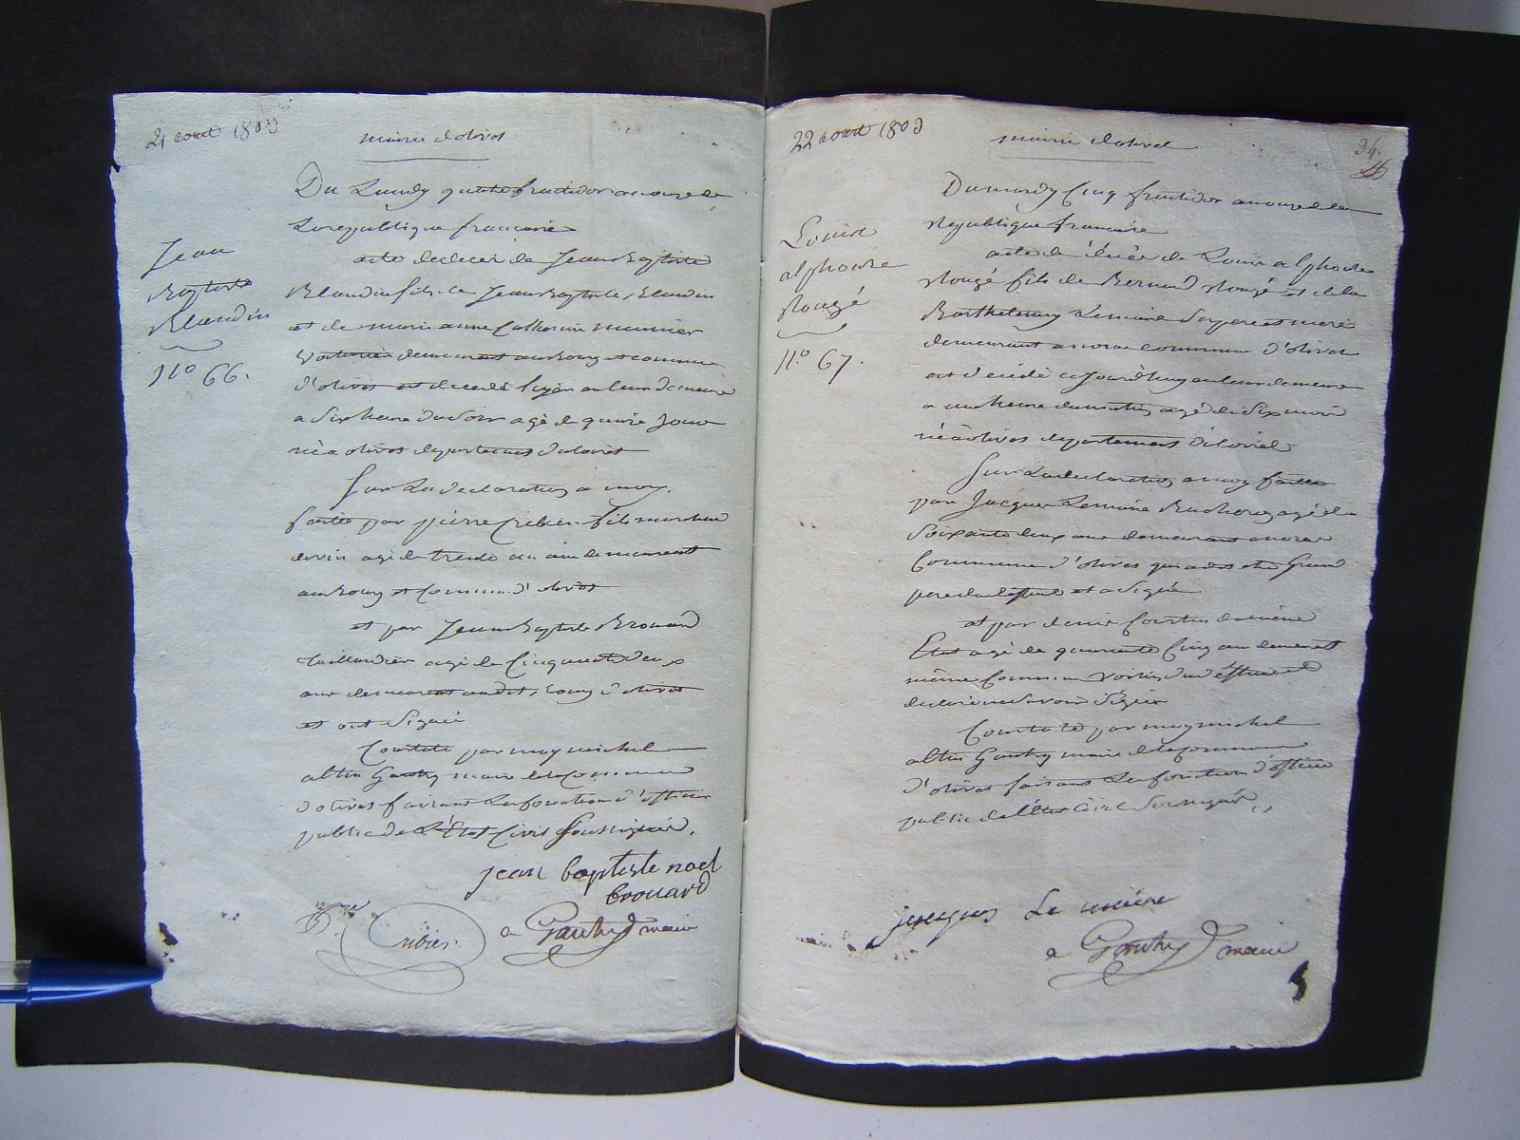 21 aout 1803
mairie dolivet
Jean
Baptiste
Blandin
N.o 66.
Du Lundy quatre fructidor an onze de
La republique francaise
acte de decès de Jean Baptiste
Blandin fils de Jean Baptiste Blandin
et de marie anne Catherine meunier
demeurant au Bourg et commune
d'olivet et decedé hyer en leur demeure
a Six heure du Soir agé de quinze Jour
né a olivet departement du loiret
Sur La declaration a moy
faitte par pierre fils marchand
de vin agé de trente un an demeurant
au Bourg et Commune d'olivet
et par Jean Baptiste Brouard
taillandier agé de Cinquante deux
ans demeurant au dit Bourg d'olivet
et ont Signé
Constaté par moy michel
altin Gauthy maire de la Commune
d'olivet faisant Les fonction d'officier
public de L'État Civil Soussigné.
jean baptiste noel
brouard
a Gauthy maire
22 aout 1803
mairie dolivet
34.
Louis
alphonse
Rougé
N.o 67.
Du mardy Cinq fructidor an onze de la
Republique francaise
acte de décès de Louis alphonse
Rougé fils de Bernard Rougé et de
Barthelemy Lemaire Ses pere et mere
demeurant en cette commune d'olivet
et decedé ce Jourd'huy en leur demeure
a une heure du matin agé de Six mois
né a olivet departement du loiret
Sur La declaration a moy faitte
par Jacques Lemaire agé de
Soixante deux ans demeurant en cette
Commune d'olivet qui a dit etre Grand
pere du deffunt et a Signé
et par denis Courtin du même
État agé de quarante Cinq an demeurant
même Commune Voisin du deffunt et a
declaré ne Savoir Signer
Constaté par moy michel
altin Gauthy maire de la Commune
d'olivet faisant Les fonction d'officier
public de l'État Civil Soussigné.
jacques Le maire
a Gauthy maire